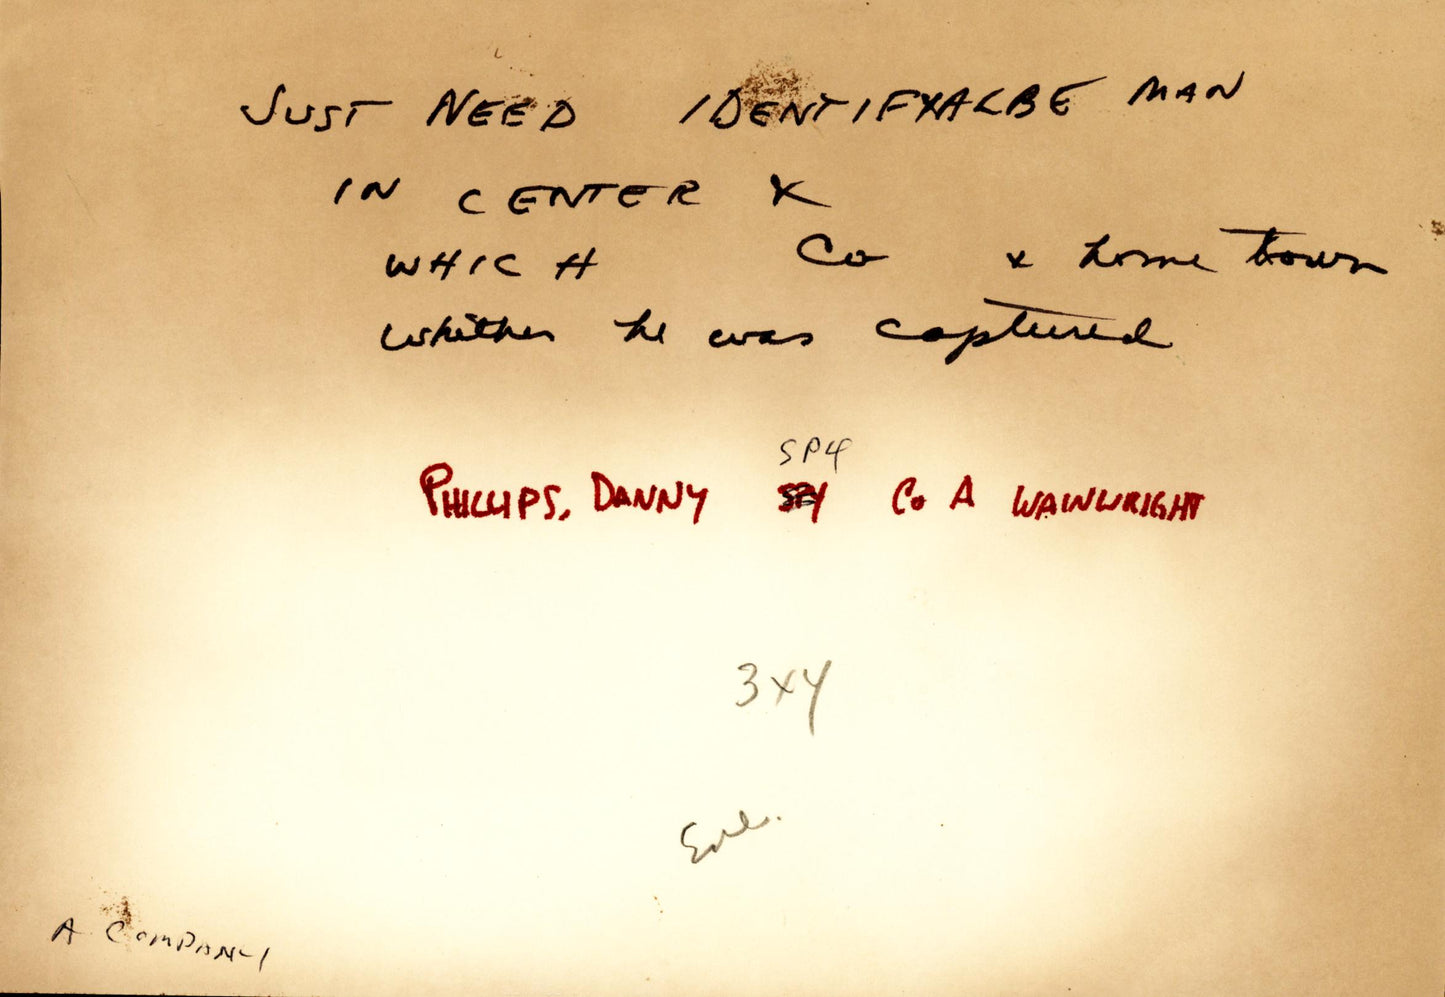 JUST NEED IDENTIFYALBE MAN
IN CENTER X
WHICH Co x home town
whither he was captured
SP4
PHILLIPS, DANNY Co A WAINWRIGHT
3x4
A COMPANY